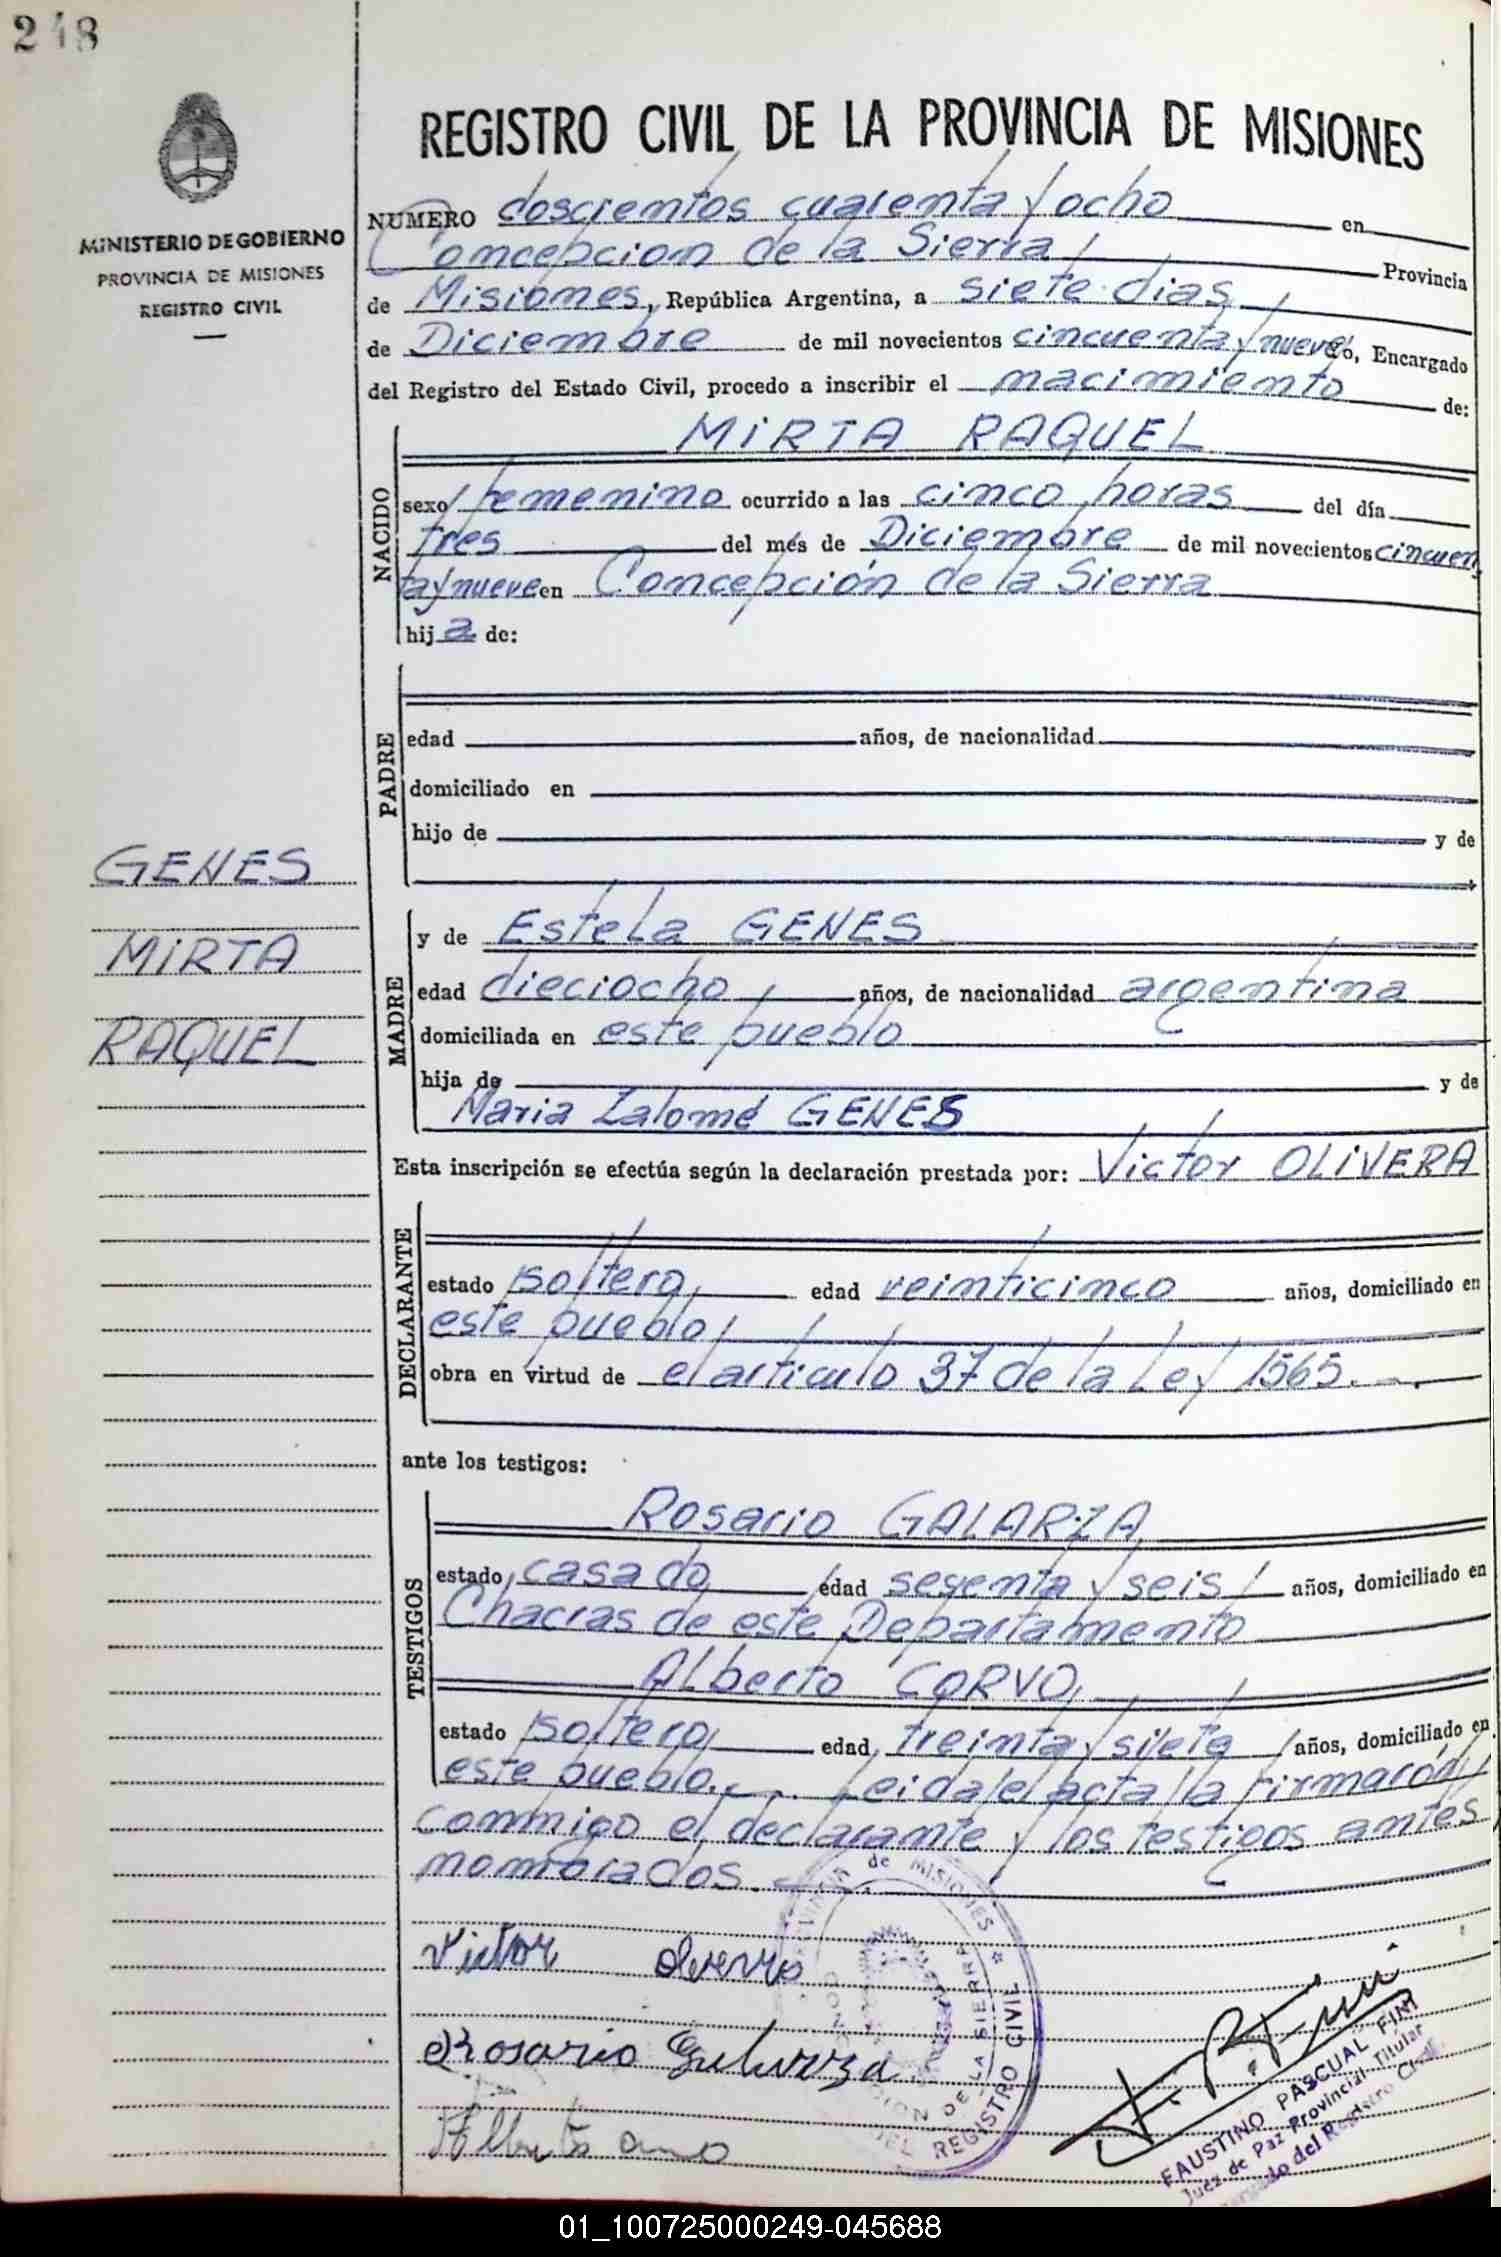 248
MINISTERIO DE GOBIERNO
PROVINCIA DE MISIONES
REGISTRO CIVIL
REGISTRO CIVIL DE LA PROVINCIA DE MISIONES
NUMERO doscientos cuarenta y ocho en
Concepcion de la Sierra Provincia
de Misiones, República Argentina, a siete dias
de Diciembre de mil novecientos cincuenta y nueve yo, Encargado
del Registro del Estado Civil, procedo a inscribir el nacimiento de:
NACIDO
MIRTA RAQUEL
sexo femenino ocurrido a las cinco horas del día
tres del més de Diciembre de mil novecientos cincuen
ta y nueve en Concepción de la Sierra
hija de:
PADRE
edad años, de nacionalidad
domiciliado en
hijo de y de
GENES
MIRTA
RAQUEL
MADRE
y de Estela GENES
edad dieciocho años, de nacionalidad argentina
domiciliada en este pueblo
hija de y de
Maria Zalomé GENES
Esta inscripción se efectúa según la declaración prestada por: Victor OLIVERA
DECLARANTE
estado soltero edad veinticinco años, domiciliado en
este pueblo
obra en virtud de el articulo 37 de la Ley 1565.
ante los testigos:
TESTIGOS
Rosario GALARZA
estado casado edad sesenta y seis años, domiciliado en
Chacras de este Departamento
Alberto CORVO
estado soltero edad treinta y siete años, domiciliado en
este pueblo. Leida el acta la firmarón
conmigo el declarante y los testigos antes
nombrados.
Victor
Rosario
PROVINCIA de MISIONES
CONCEPCION DE LA SIERRA
DEL REGISTRO CIVIL
FAUSTINO PASCUAL FINI
Juez de Paz Provincial Titular
Encargado del Registro Civil
01_100725000249-045688